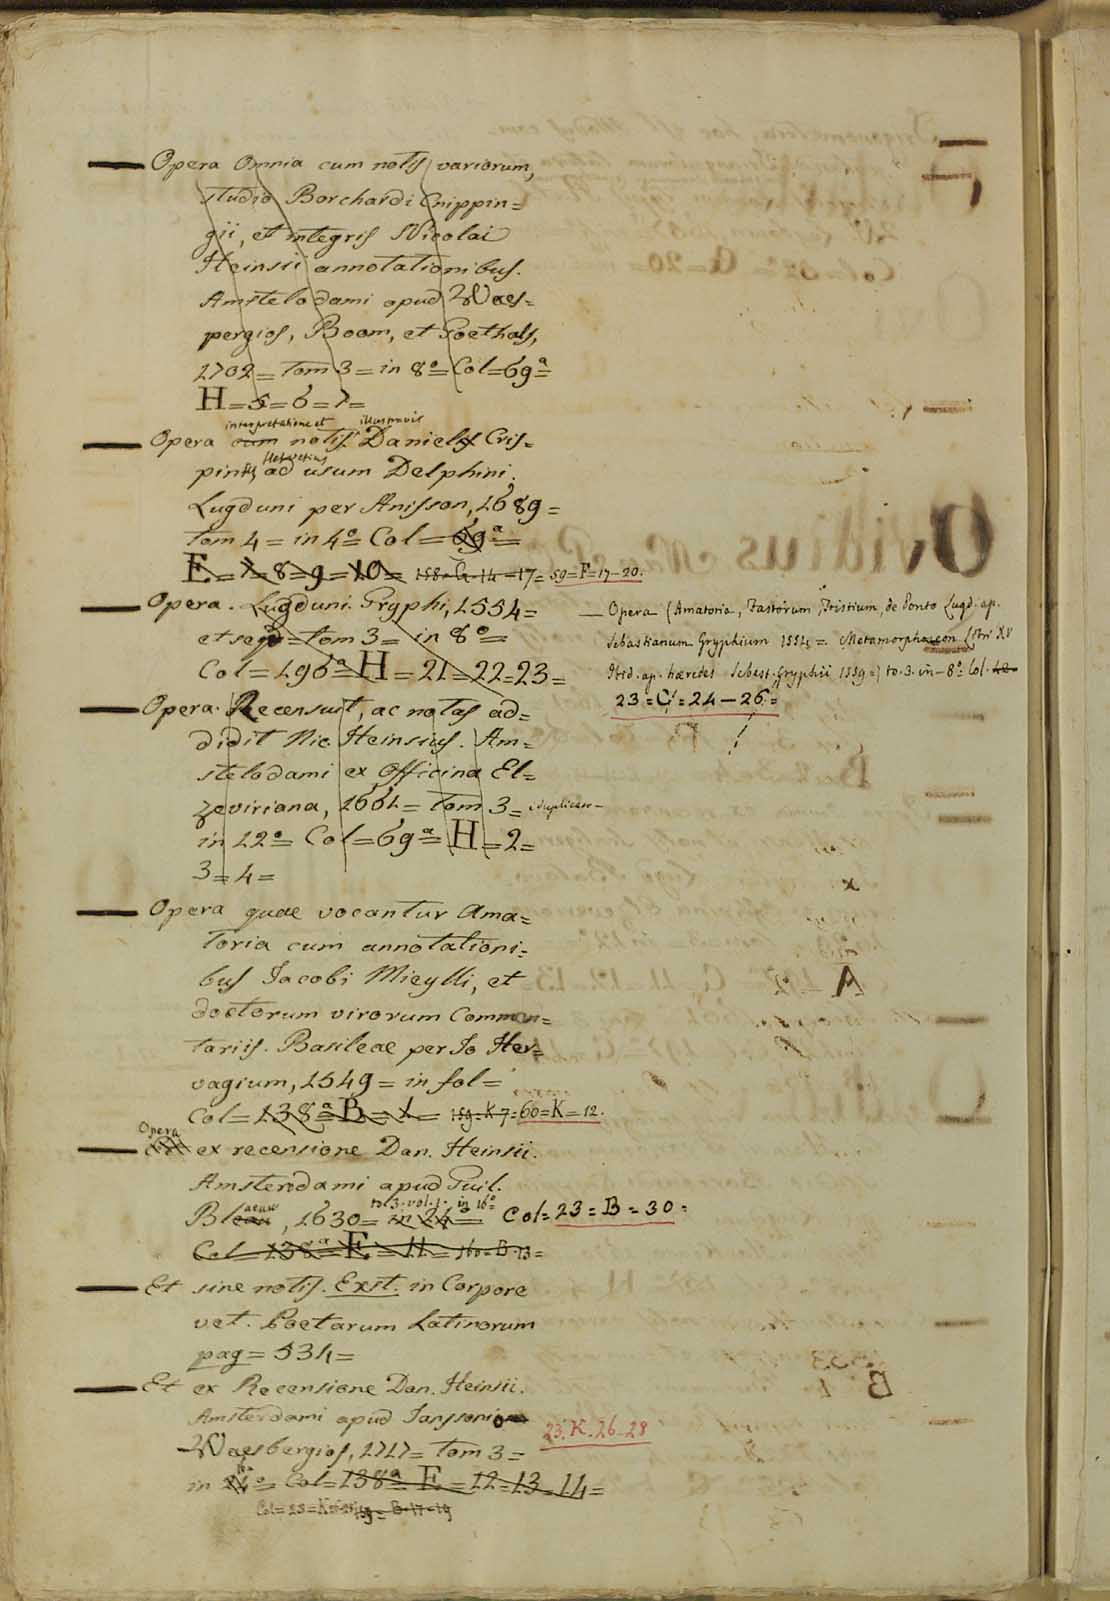 Opera Omnia cum notis variorum,
studio Borchardi Cnippin=
gii, et integris Nicolai
Heinsii annotationibus.
Amstelodami apud Waes=
pergios, Boom, et Goethals,
1702 = tom 3 = in 8° = Col = 69ª =
H = 5 = 6 = 7 =
interpretatione et illustravit
Opera cum notis Danielis Cris=
Helvetius
pinus ad usum Delphini.
Lugduni per Anisson, 1689 =
tom 4 = in 4° = Col = 69ª =
E = 7 = 8 = 9 = 10 = 158 = G = 14 = 17 = 59 = F = 17 - 20.
Opera. Lugduni. Gryphi, 1554 =
et seqq = tom 3 = in 8° =
Col = 196ª = H = 21 = 22 = 23 =
— Opera (Amatoria, Fastorum, Tristium, de Ponto Lugd. ap.
Sebastianum Gryphium 1554 = Metamorphoseon Libri XV
Ibid. ap. hæredes Sebast. Gryphii 1559 =) to. 3. in - 8° Col.
23 = G = 24 - 26 =
Opera. Recensuit, ac notas ad=
didit Nic. Heinsius. Am=
stelodami ex Officina El=
zeviriana, 1661 = tom 3 = duplicat
in 12° = Col = 69ª = H = 2 =
3 = 4 =
Opera quae vocantur Ama=
toria cum annotationi=
bus Jacobi Micylli, et
doctorum virorum Commen=
tariis. Basileae per Io Her=
vagium, 1549 = in fol =
Col = 138ª = B = 1 = 159 = K 7 = 60 = K = 12.
Opera
ex recensione Dan. Heinsii.
Amsterdami apud Guil.
to. 3. vol. 1. in 16°
Bleau, 1630 = in 24 = Col = 23 = B = 30 =
Col = 138ª = E = 11 = 160 = B 13 =
Et sine notis. Exst. in Corpore
vet. Poetarum Latinorum
pag = 534 =
Et ex Recensione Dan. Heinsii.
Amsterdami apud Janssonio
Waesbergios, 1717 = tom 3 =
23. K. 26 - 28
in 24° = Col = 138ª = E = 12 = 13 = 14 =
Col = 23 = B = 17 = 19